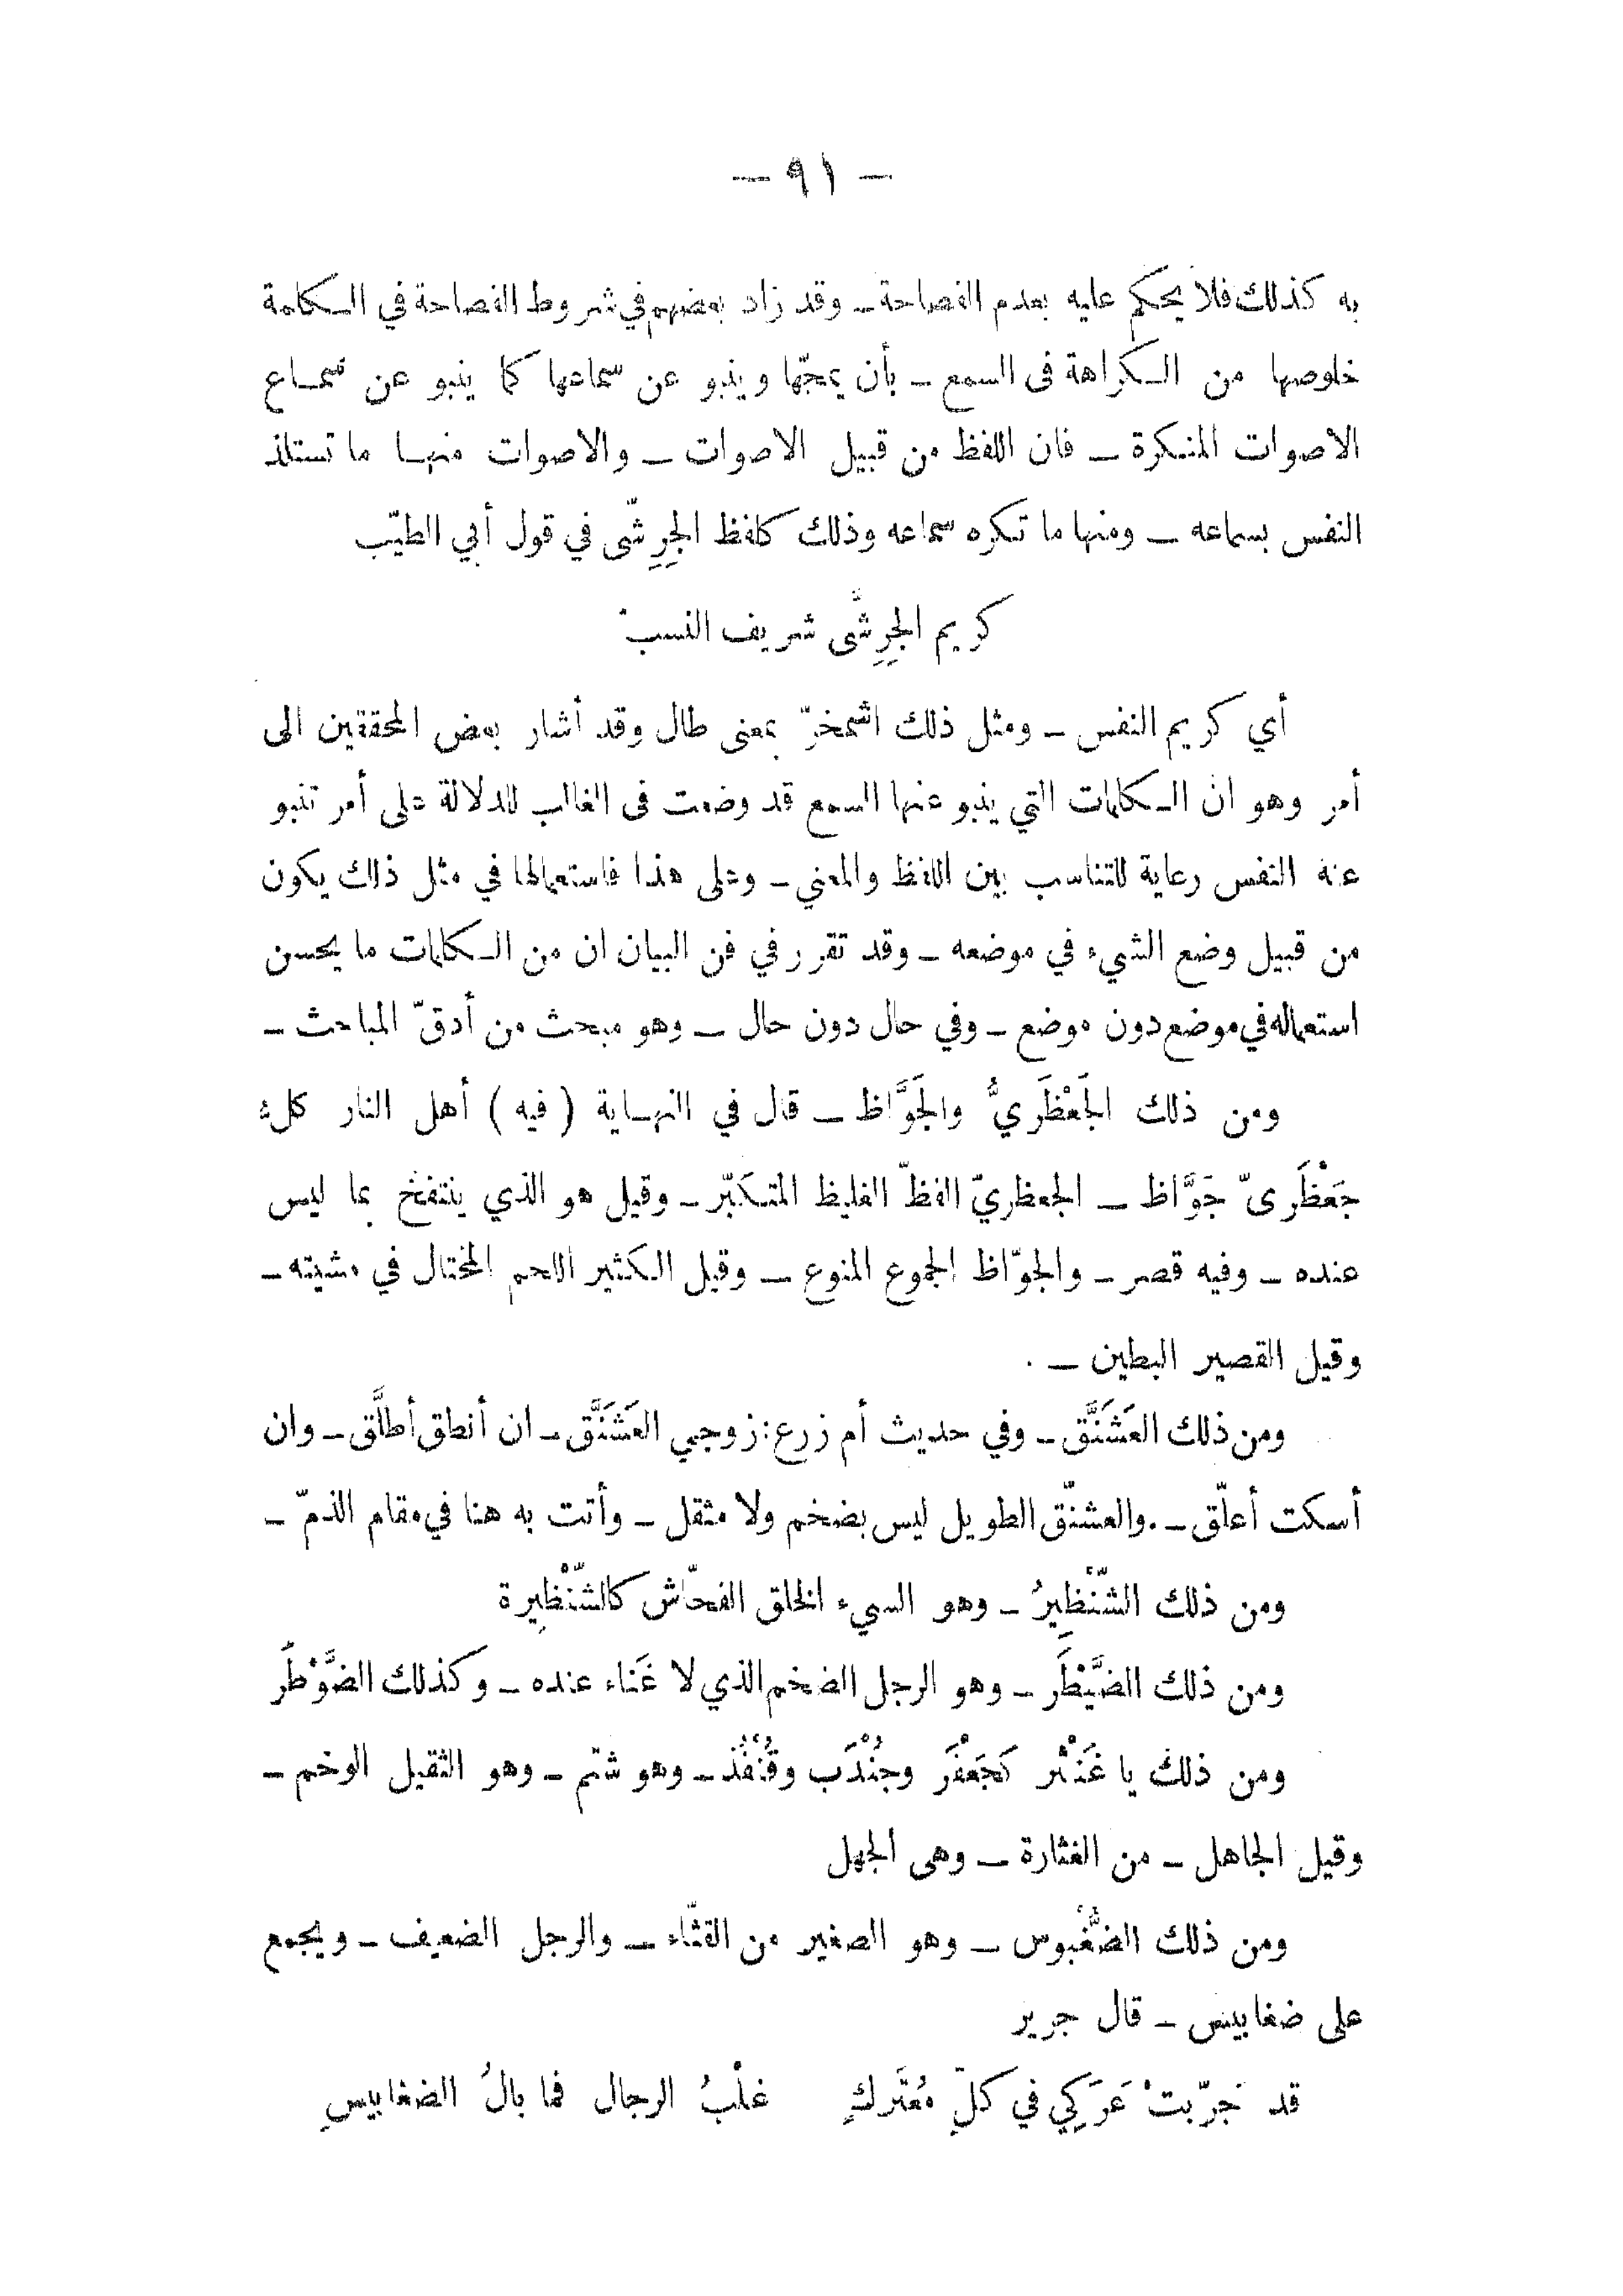 — ٩١ —
به كذلك فلا يحكم عليه بعدم الفصاحة — وقد زاد بعضهم في شروط الفصاحة في الكلمة
خلوصها من الكراهة فى السمع — بأن يمجّها وينبو عن سماعها كما ينبو عن سماع
الاصوات المنكرة — فان اللفظ من قبيل الاصوات — والاصوات منها ما تستلذ
النفس بسماعه — ومنها ما تكره سماعه وذلك كلفظ الجِرِشّى في قول أبي الطيّب
كريم الجِرِشَّى شريف النسب
أي كريم النفس — ومثل ذلك اشمخرّ بمعنى طال وقد أشار بعض المحققين الى
أمر وهو ان الكلمات التي ينبو عنها السمع قد وضعت فى الغالب للدلالة على أمر تنبو
عنه النفس رعاية للتناسب بين اللفظ والمعني — وعلى هذا فاستعمالها في مثل ذلك يكون
من قبيل وضع الشيء في موضعه — وقد تقرر في فن البيان ان من الكلمات ما يحسن
استعماله في موضع دون موضع — وفي حال دون حال — وهو مبحث من أدقّ المباحث —
ومن ذلك الجَعْظَريُّ والجَوَّاظ — قال في النهاية ( فيه ) أهل النار كل
جَعْظَرىّ جَوَّاظ — الجعظريّ الفظّ الغليظ المتكبّر — وقيل هو الذي ينتفخ بما ليس
عنده — وفيه قصر — والجوّاظ الجموع المنوع — وقيل الكثير اللحم المختال في مشيته —
وقيل القصير البطين — .
ومن ذلك العَشَنَّق — وفي حديث أم زرع : زوجي العَشَنَّق — ان أنطق أطلَّق — وان
أسكت أعلّق — . والعشنّق الطويل ليس بضخم ولا مثقل — وأتت به هنا في مقام الذمّ —
ومن ذلك الشّنْظِيرُ — وهو السيء الخلق الفحّاش كالشّنْظِيرة
ومن ذلك الضَّيْطَر — وهو الرجل الضخم الذي لا غَناء عنده — وكذلك الضَّوْطَر
ومن ذلك يا غَنْثَر كَجَعْفَر وجُنْدَب وقُنْفُذ — وهو شتم — وهو الثقيل الوخم —
وقيل الجاهل — من الغثارة — وهى الجهل
ومن ذلك الضُّغْبوس — وهو الصغير من القثّاء — والرجل الضعيف — ويجمع
على ضغابيس — قال جرير
قد جَرّبتْ عَرَكِي في كلّ مُعتَركٍ غلْبُ الرجال فما بالُ الضغابيسِ